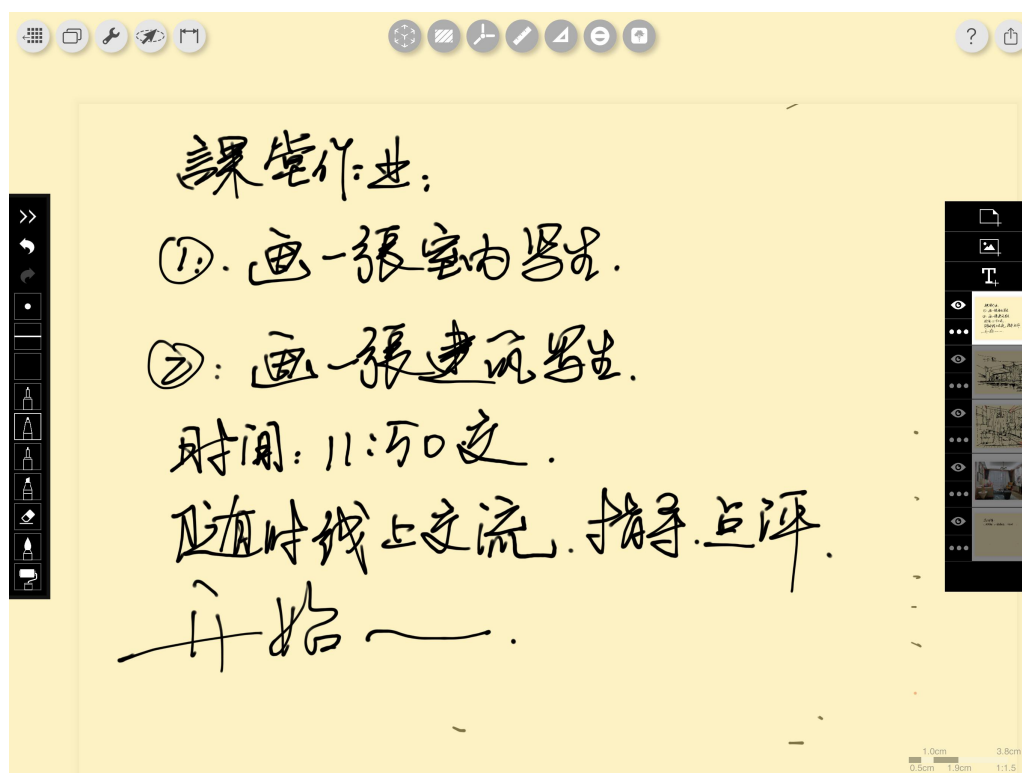 ?
課堂作业:
①. 画一張室内写生.
②: 画一張建筑写生.
时间: 11:50交.
随时线上交流.指导.点评.
开始——.
1.0cm 3.8cm
0.5cm 1.9cm 1:1.5